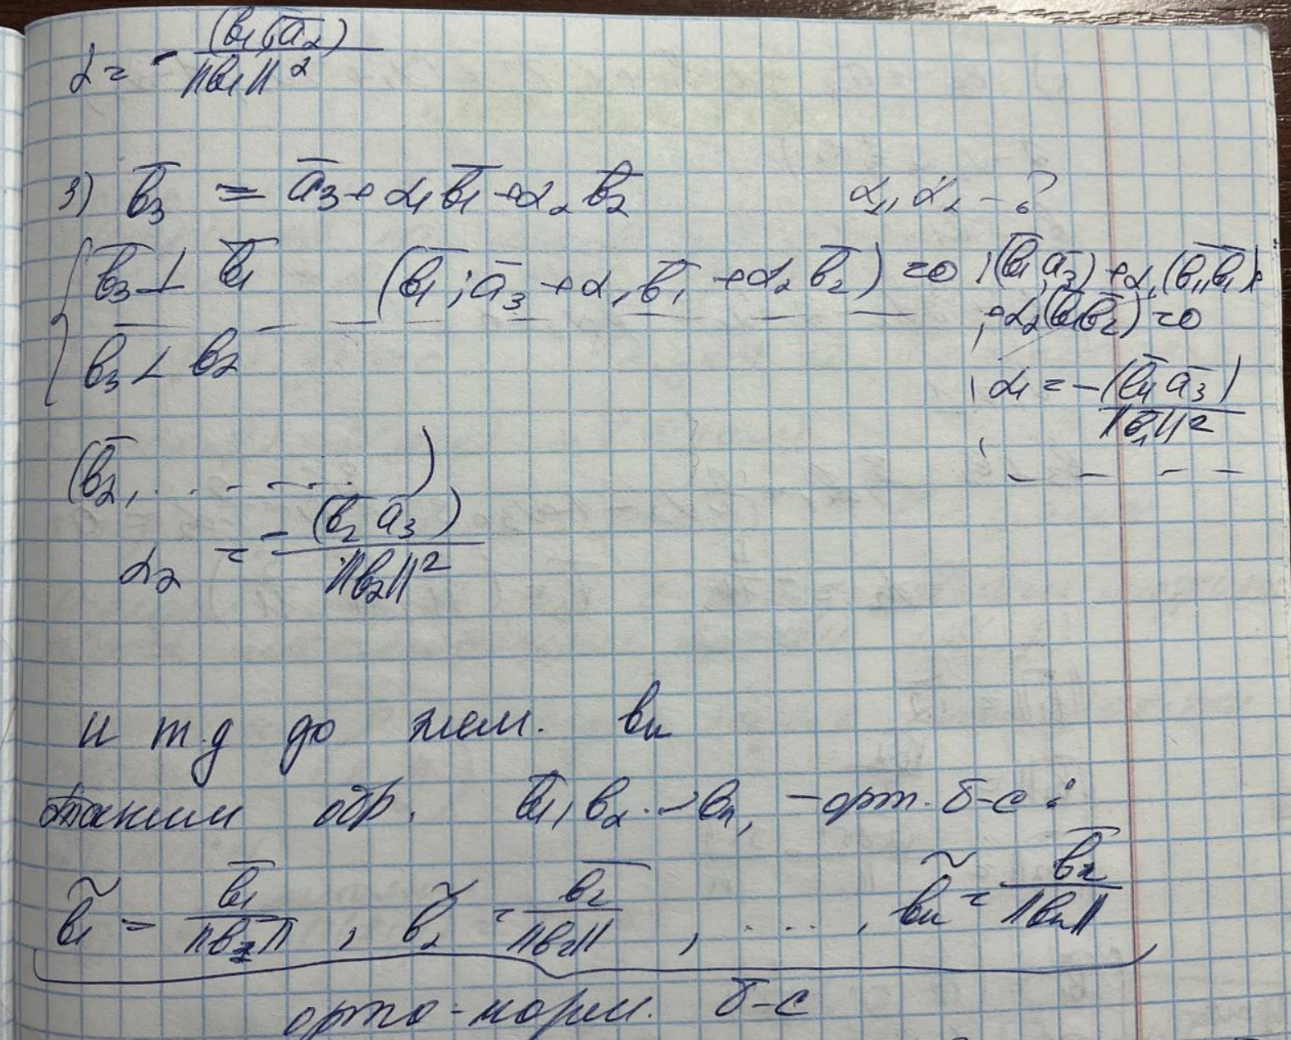 α = - (b̅₁, a̅₂) / ||b₁||²
3) b̅₃ = a̅₃ + α₁b̅₁ + α₂b̅₂ α₁, α₂ - ?
{ b̅₃ ⊥ b̅₁ (b̅₁; a̅₃ + α₁b̅₁ + α₂b̅₂) = 0 ; (b̅₁, a̅₃) + α₁(b̅₁, b̅₁) +
+ α₂(b̅₁b̅₂) = 0
b₃ ⊥ b₂
α₁ = - (b̅₁ a̅₃) / ||b̅₁||²
(b̅₂, . . - - - . )
α₂ = - (b̅₂ a̅₃) / ||b₂||²
и т.д до элем. bₙ
таким обр. b̅₁, b₂ ... bₙ, - орт. б-с :
b̃₁ = b̅₁ / ||b₁|| , b̃₂ = b̅₂ / ||b₂|| , . . . . , b̃ₙ = b̅ₙ / ||bₙ||
орто-норм. б-с